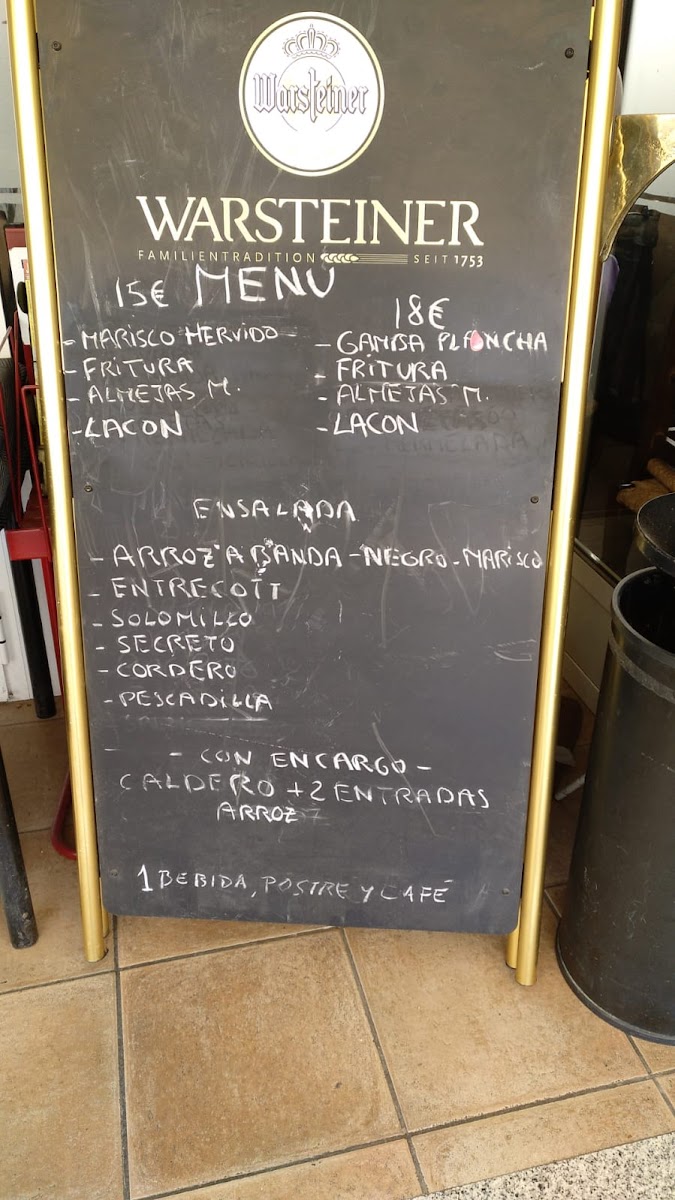 Warsteiner
WARSTEINER
FAMILIENTRADITION SEIT 1753
15€ MENU
18€
- MARISCO HERVIDO -
- FRITURA
- ALMEJAS M.
- LACON
- GAMBA PLANCHA
- FRITURA
- ALMEJAS M.
- LACON
ENSALADA
- ARROZ A BANDA - NEGRO - MARISCO
- ENTRECOTT
- SOLOMILLO
- SECRETO
- CORDERO
- PESCADILLA
- CON ENCARGO -
CALDERO + 2 ENTRADAS
ARROZ
1 BEBIDA, POSTRE Y CAFÉ